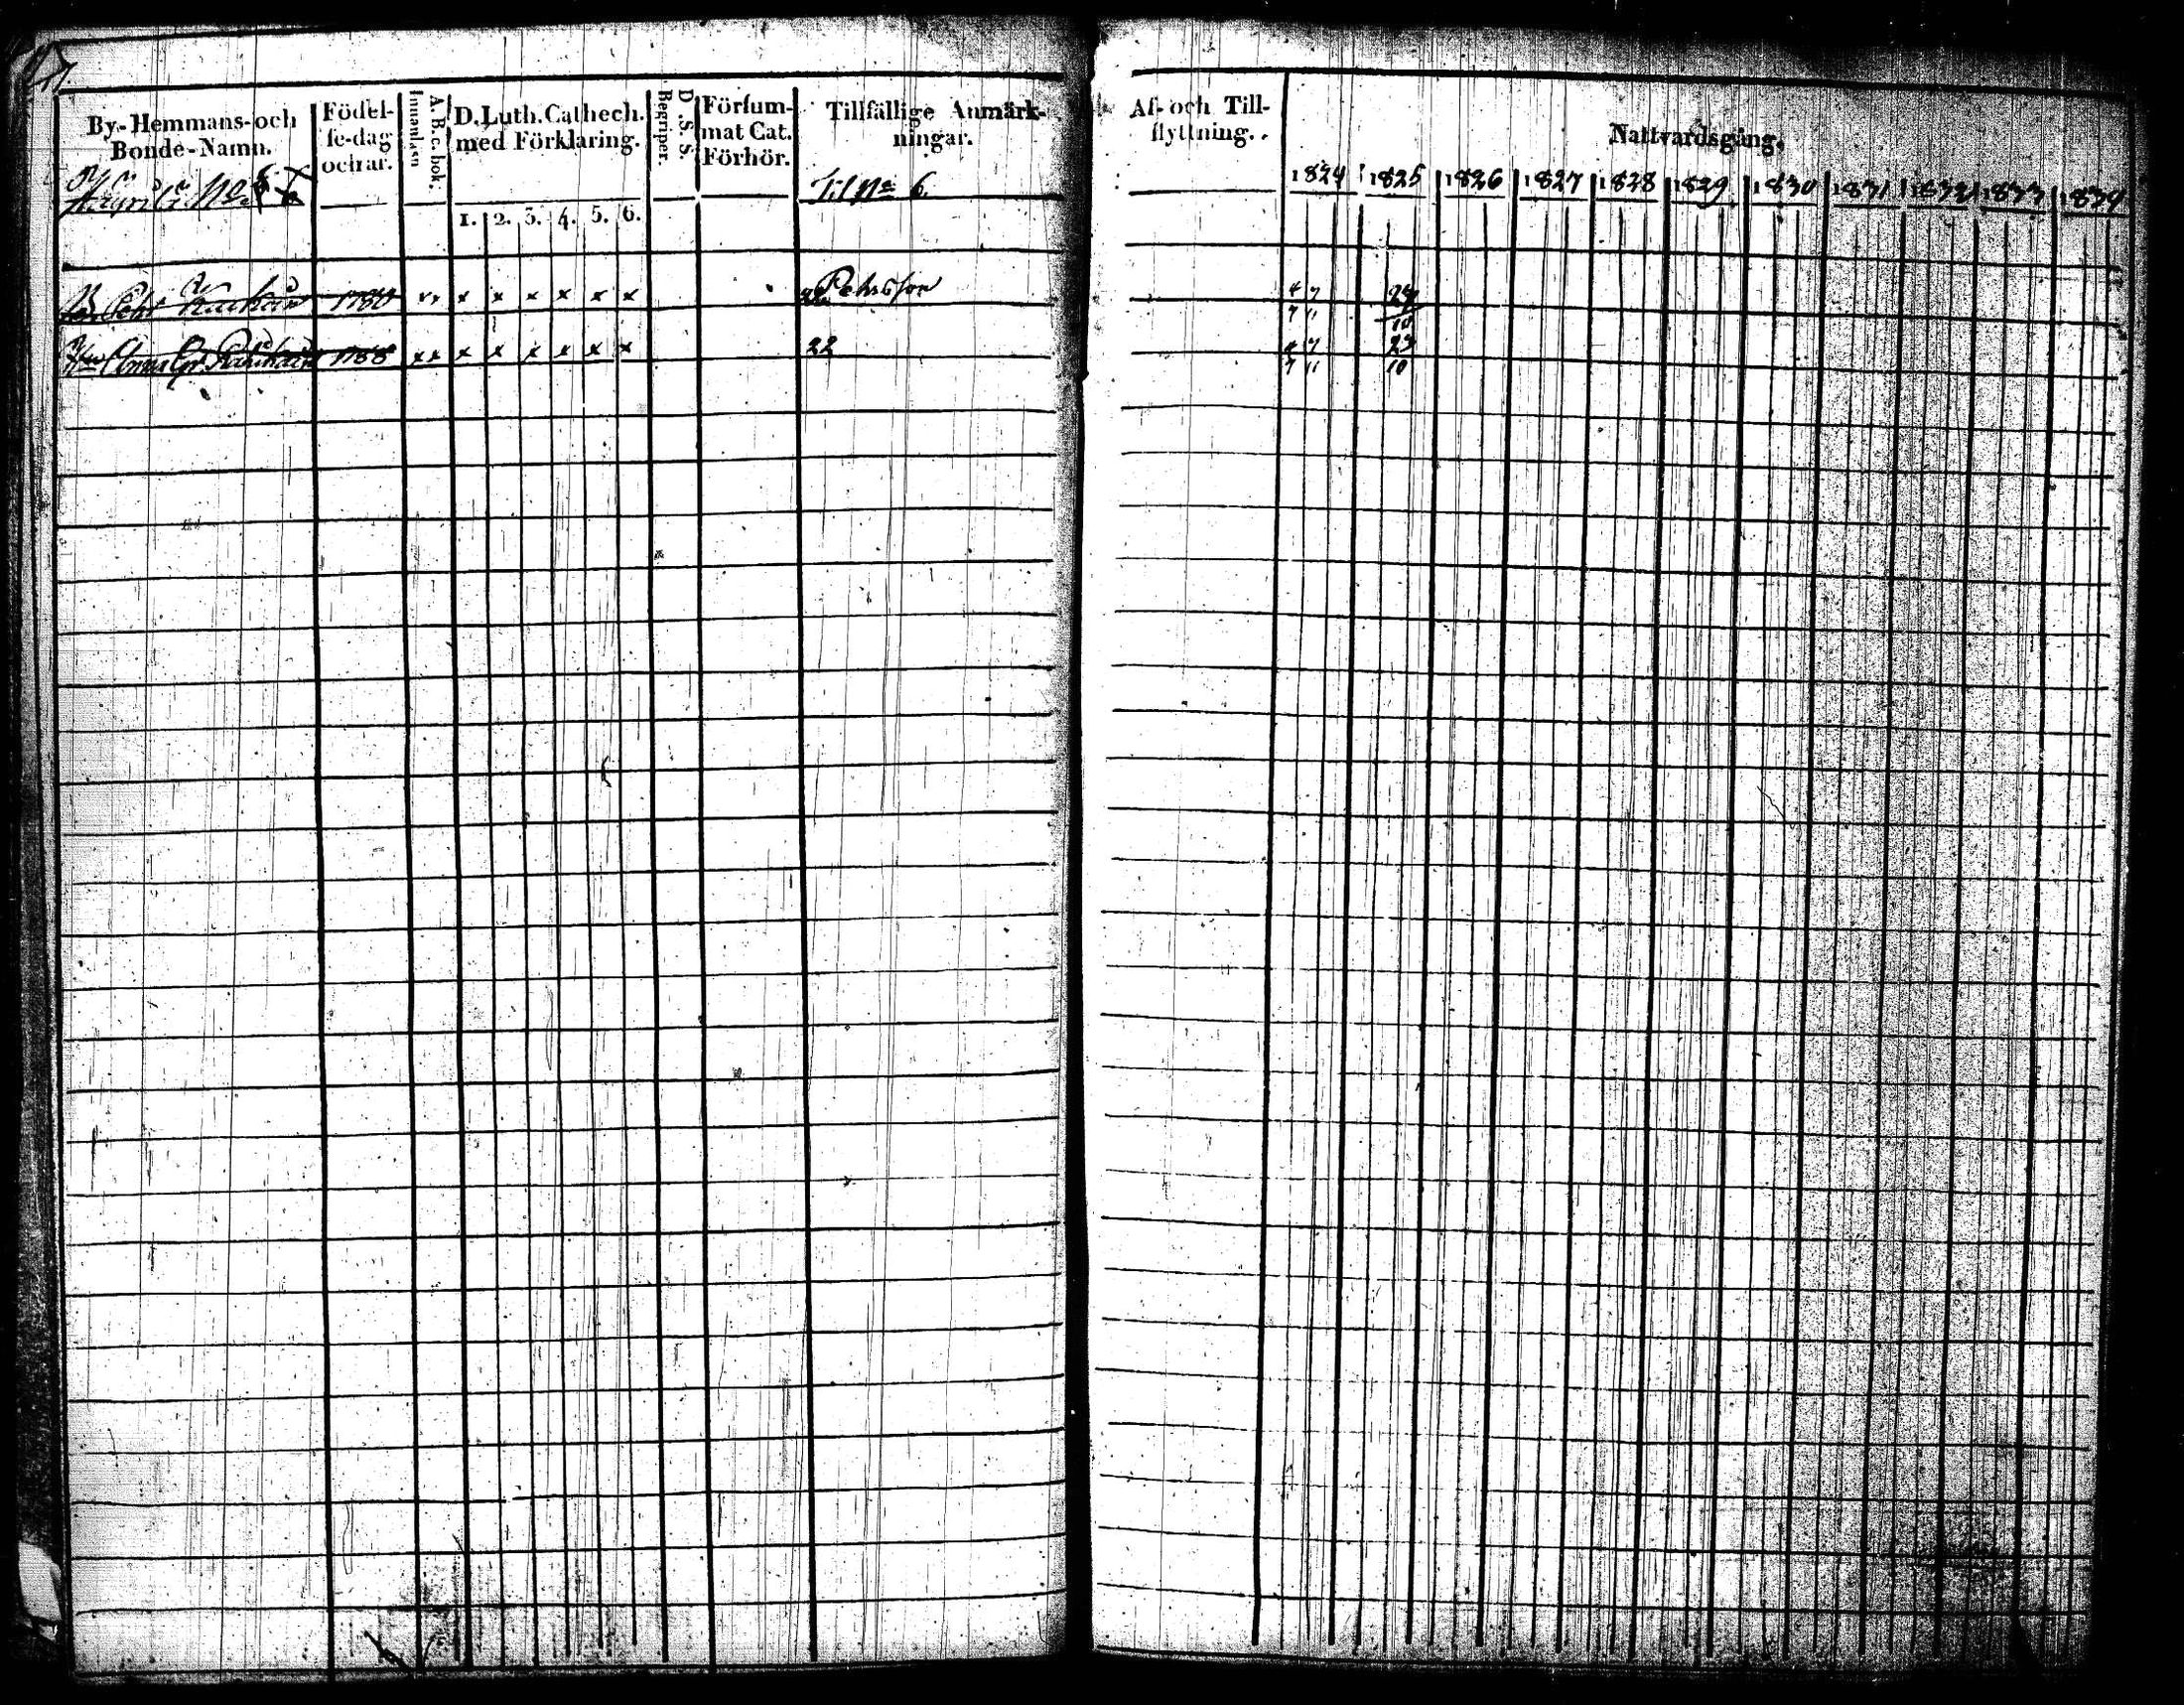 17.
By-Hemmans-och
Bonde-Namn.
No
Födel-
se-dag
och år.
Innanläsn
A.B.c. bok.
D. Luth. Cathech.
med Förklaring.
1. 2. 3. 4. 5. 6.
Begriper.
D.S.S.
Försum-
mat Cat.
Förhör.
Tillfällige Anmärk-
ningar.
Til No 6.
Af- och Till-
flyttning.
Nattvardsgång.
1824 1825 1826 1827 1828 1829 1830 1831 1832 1833 1834
Pehr 1780 x x x x x x x x Pehrsson 4 7 24
7 11 10
Anna 1788 x x x x x x x x 22 4 7 23
7 11 10